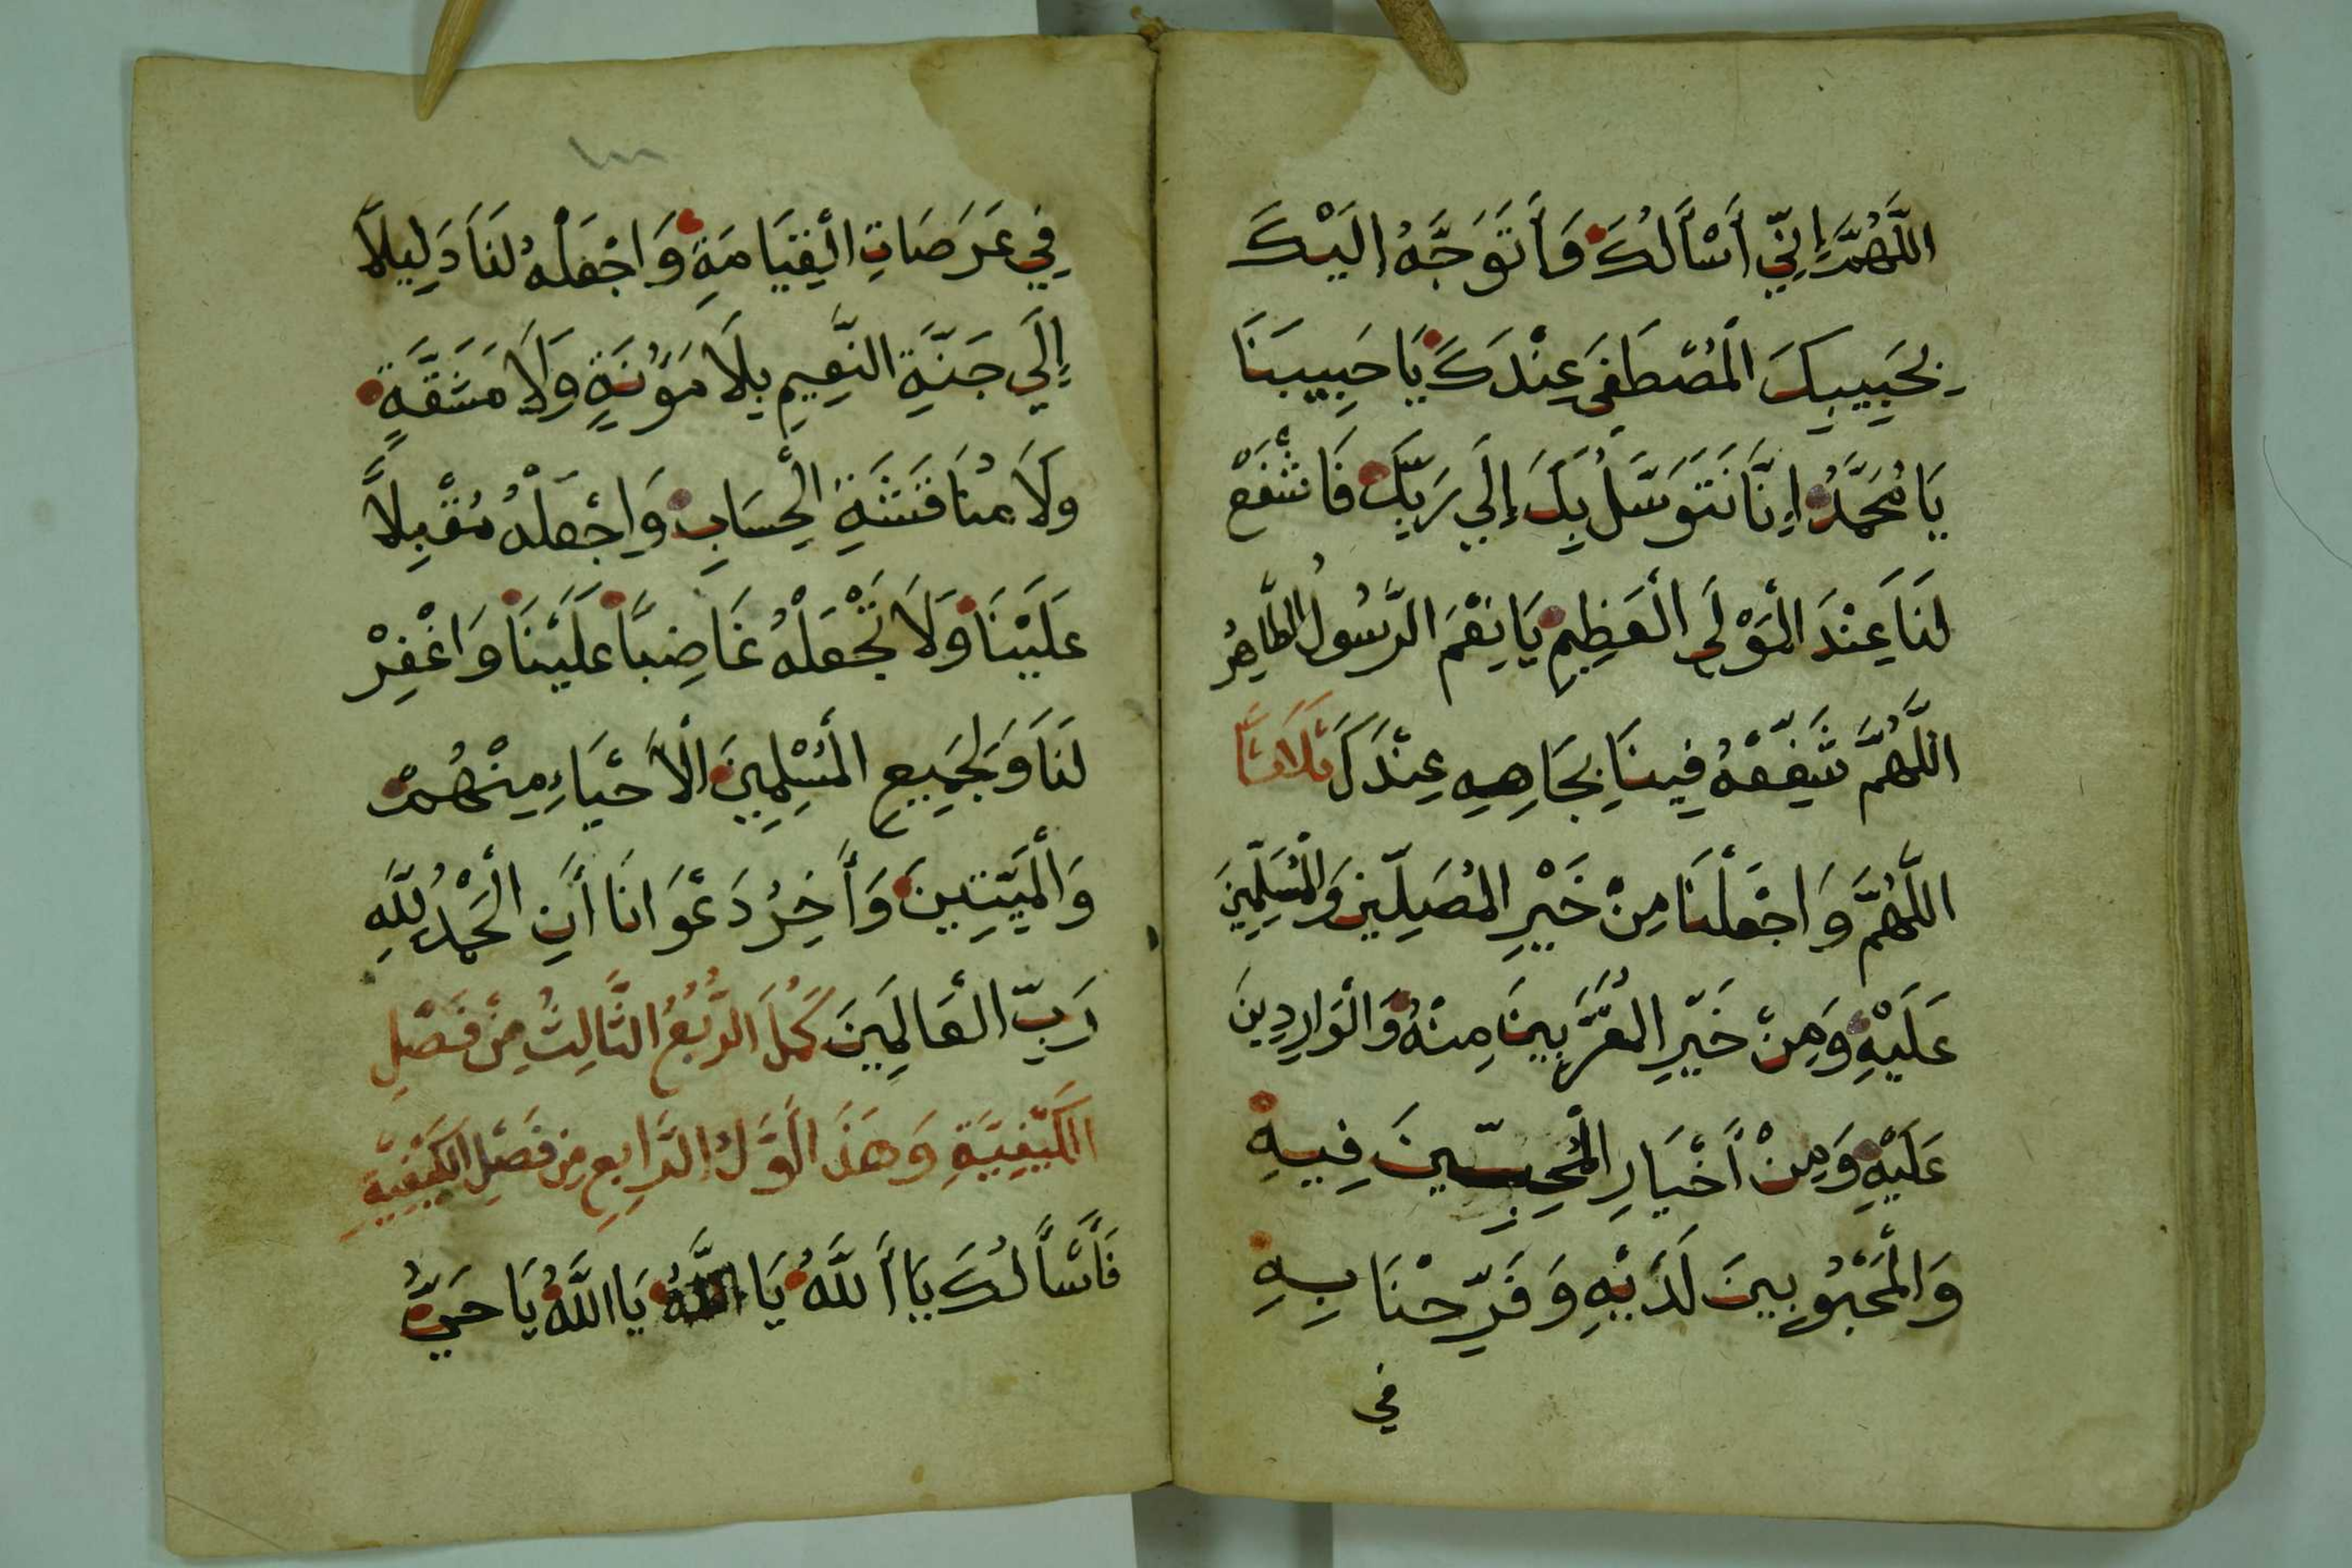 اللَّهُمَّ إِنِّي أَسْأَلُكَ وَأَتَوَجَّهُ إِلَيْكَ
بِحَبِيبِكَ الْمُصْطَفَى عِنْدَكَ يَا حَبِيبَنَا
يَا مُحَمَّدُ إِنَّا نَتَوَسَّلُ بِكَ إِلَي رَبِّكَ فَاشْفَعْ
لَنَا عِنْدَ الْمَوْلَى الْعَظِيمِ يَا نِعْمَ الرَّسُولُ الطَّاهِرُ
اللَّهُمَّ شَفِّعْهُ فِينَا بِجَاهِهِ عِنْدَكَ ثَلَاثًا
اللَّهُمَّ وَاجْعَلْنَا مِنْ خَيْرِ الْمُصَلِّينَ وَالْمُسَلِّمِينَ
عَلَيْهِ وَمِنْ خَيْرِ الْمُقَرَّبِينَ مِنْهُ وَالْوَارِدِينَ
عَلَيْهِ وَمِنْ أَخْيَارِ الْمُحِبِّينَ فِيهِ
وَالْمَحْبُوبِينَ لَدَيْهِ وَفَرِّحْنَا بِهِ
في
فِي عَرَصَاتِ الْقِيَامَةِ وَاجْعَلْهُ لَنَا دَلِيلًا
إِلَي جَنَّةِ النَّعِيمِ بِلَا مَؤُنَةٍ وَلَا مَشَقَّةٍ
وَلَا مُنَاقَشَةِ الْحِسَابِ وَاجْعَلْهُ مُقْبِلًا
عَلَيْنَا وَلَا تَجْعَلْهُ غَاضِبًا عَلَيْنَا وَاغْفِرْ
لَنَا وَلِجَمِيعِ الْمُسْلِمِينَ الْأَحْيَاءِ مِنْهُمْ
وَالْمَيِّتِينَ وَأَخِرُ دَعْوَانَا أَنِ الْحَمْدُ لِلَّهِ
رَبِّ الْعَالَمِينَ كَمُلَ الرُّبُعُ الثَّالِثُ مِنْ فَصْلِ
الْكَيْفِيَّةِ وَهَذَا أَوَّلُ الرَّابِعِ مِنْ فَصْلِ الْكَيْفِيَّةِ
فَأَسْأَلُكَ يَا أَللَّهُ يَا اللَّهُ يَا اللَّهُ يَا حَيُّ